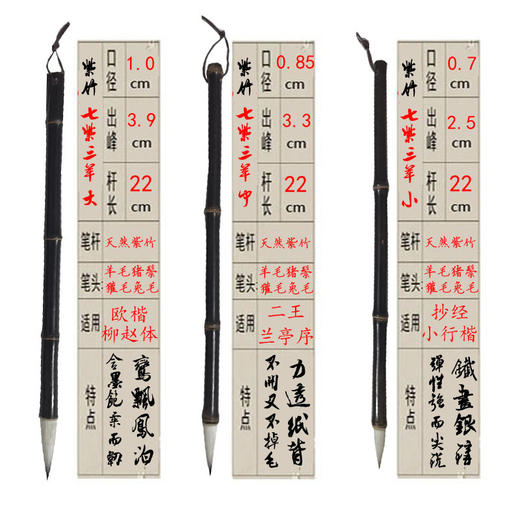 紫竹
七紫三羊大
口径 1.0 cm
出峰 3.9 cm
杆长 22 cm
笔杆 天然紫竹
笔头 羊毛猪鬃
獾毛兔毛
适用 欧楷
柳赵体
特点
鸞飄鳳泊
含墨飽柔而韌
紫竹
七紫三羊中
口径 0.85 cm
出峰 3.3 cm
杆长 22 cm
笔杆 天然紫竹
笔头 羊毛猪鬃
獾毛兔毛
适用 二王
兰亭序
特点
力透紙背
不開叉不掉毛
紫竹
七紫三羊小
口径 0.7 cm
出峰 2.5 cm
杆长 22 cm
笔杆 天然紫竹
笔头 羊毛猪鬃
獾毛兔毛
适用 抄经
小行楷
特点
鐵畫銀鉤
彈性強而尖